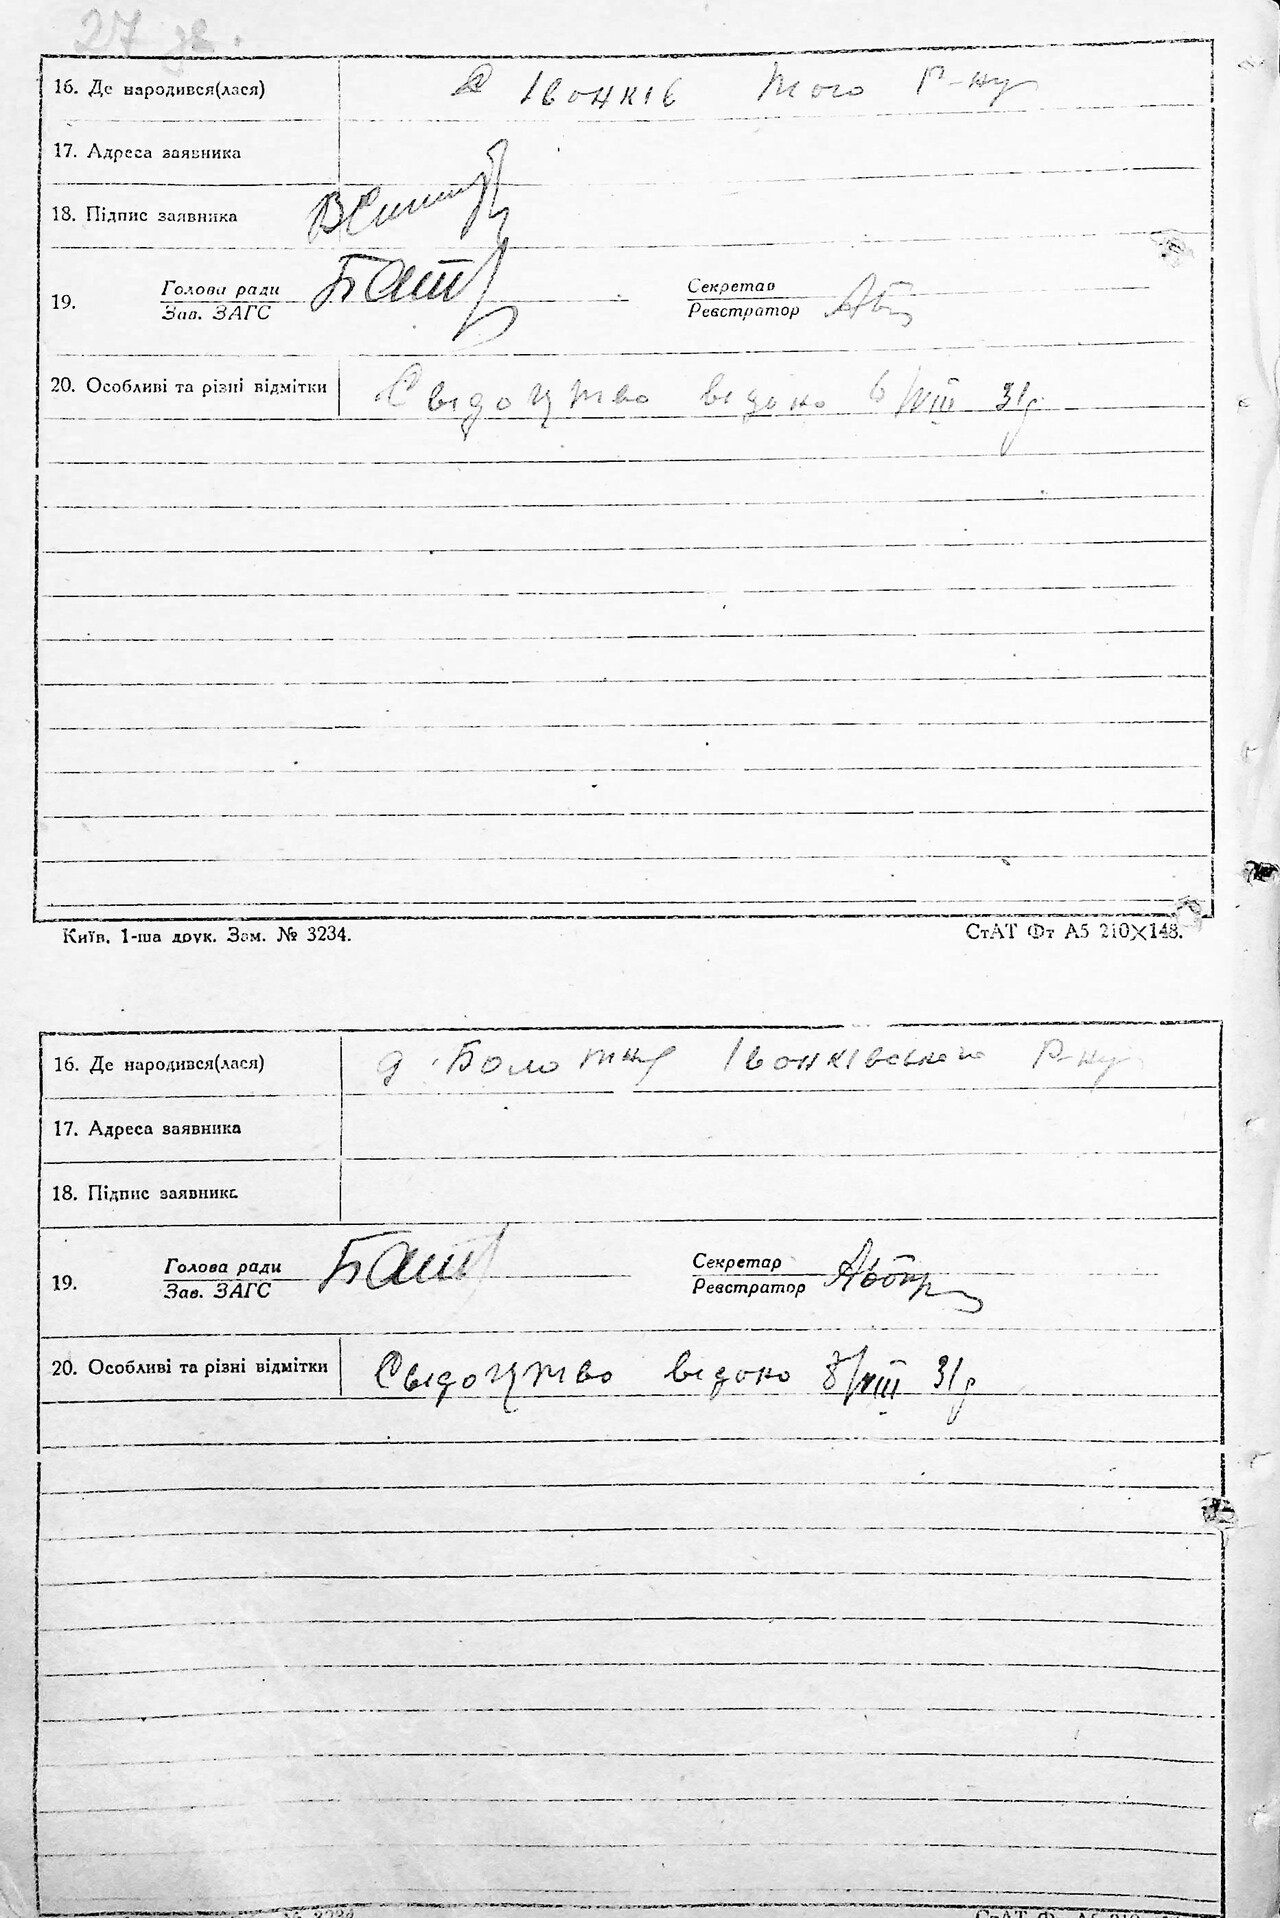 27 зв.
16. Де народився(лася) с Івонків того р-ну
17. Адреса заявника
18. Підпис заявника
19. Голова ради Секретар
Зав. ЗАГС Реєстратор
20. Особливі та різні відмітки Свідоцтво відоно 6/VIII 31р
Київ. 1-ша друк. Зам. № 3234. СтАТ Фт А5 210×148.
16. Де народився(лася) д. Болотну Івонківського р-ну
17. Адреса заявника
18. Підпис заявника
19. Голова ради Секретар
Зав. ЗАГС Реєстратор
20. Особливі та різні відмітки Свідоцтво відоно 8/VIII 31р
№ 3234